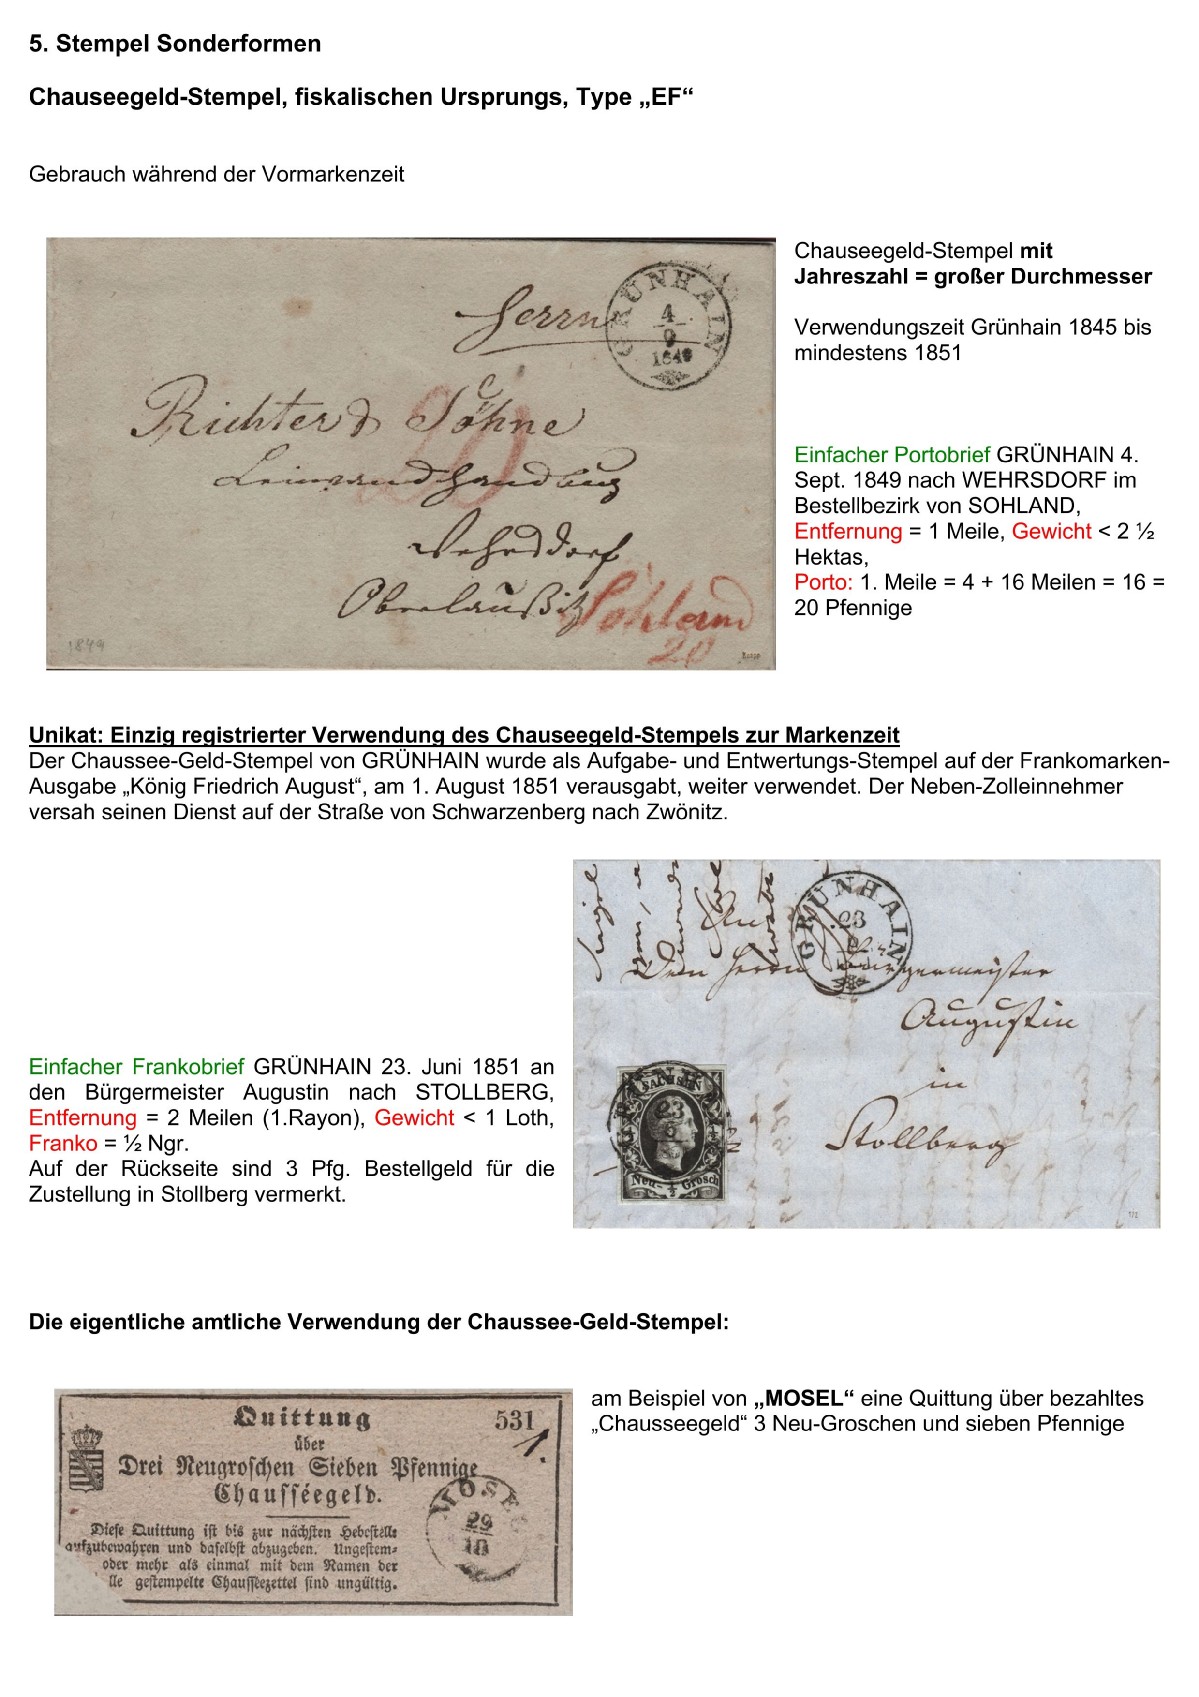 5. Stempel Sonderformen
Chauseegeld-Stempel, fiskalischen Ursprungs, Type „EF“
Gebrauch während der Vormarkenzeit
GRÜNHAIN
4
9
1849
Herrn
Richter & Söhne
Leinwandhandlung
Wehrsdorf
Oberlaußitz
Sohland
20
20
1849
Chauseegeld-Stempel mit
Jahreszahl = großer Durchmesser
Verwendungszeit Grünhain 1845 bis
mindestens 1851
Einfacher Portobrief GRÜNHAIN 4.
Sept. 1849 nach WEHRSDORF im
Bestellbezirk von SOHLAND,
Entfernung = 1 Meile, Gewicht < 2 ½
Hektas,
Porto: 1. Meile = 4 + 16 Meilen = 16 =
20 Pfennige
Unikat: Einzig registrierter Verwendung des Chauseegeld-Stempels zur Markenzeit
Der Chaussee-Geld-Stempel von GRÜNHAIN wurde als Aufgabe- und Entwertungs-Stempel auf der Frankomarken-
Ausgabe „König Friedrich August“, am 1. August 1851 verausgabt, weiter verwendet. Der Neben-Zolleinnehmer
versah seinen Dienst auf der Straße von Schwarzenberg nach Zwönitz.
GRÜNHAIN
23
An
Den Herrn Bürgermeister
Augustin
in
Stollberg
SACHSEN
23
Neu- ½ Grosch
Einfacher Frankobrief GRÜNHAIN 23. Juni 1851 an
den Bürgermeister Augustin nach STOLLBERG,
Entfernung = 2 Meilen (1.Rayon), Gewicht < 1 Loth,
Franko = ½ Ngr.
Auf der Rückseite sind 3 Pfg. Bestellgeld für die
Zustellung in Stollberg vermerkt.
Die eigentliche amtliche Verwendung der Chaussee-Geld-Stempel:
Quittung 531
über 1.
Drei Neugroschen Sieben Pfennige
Chausséegeld.
MOSEL
29
10
Diese Quittung ist bis zur nächsten Hebestelle
aufzubewahren und daselbst abzugeben. Ungestem-
oder mehr als einmal mit dem Namen der
lle gestempelte Chausseezettel sind ungültig.
am Beispiel von „MOSEL“ eine Quittung über bezahltes
„Chausseegeld“ 3 Neu-Groschen und sieben Pfennige